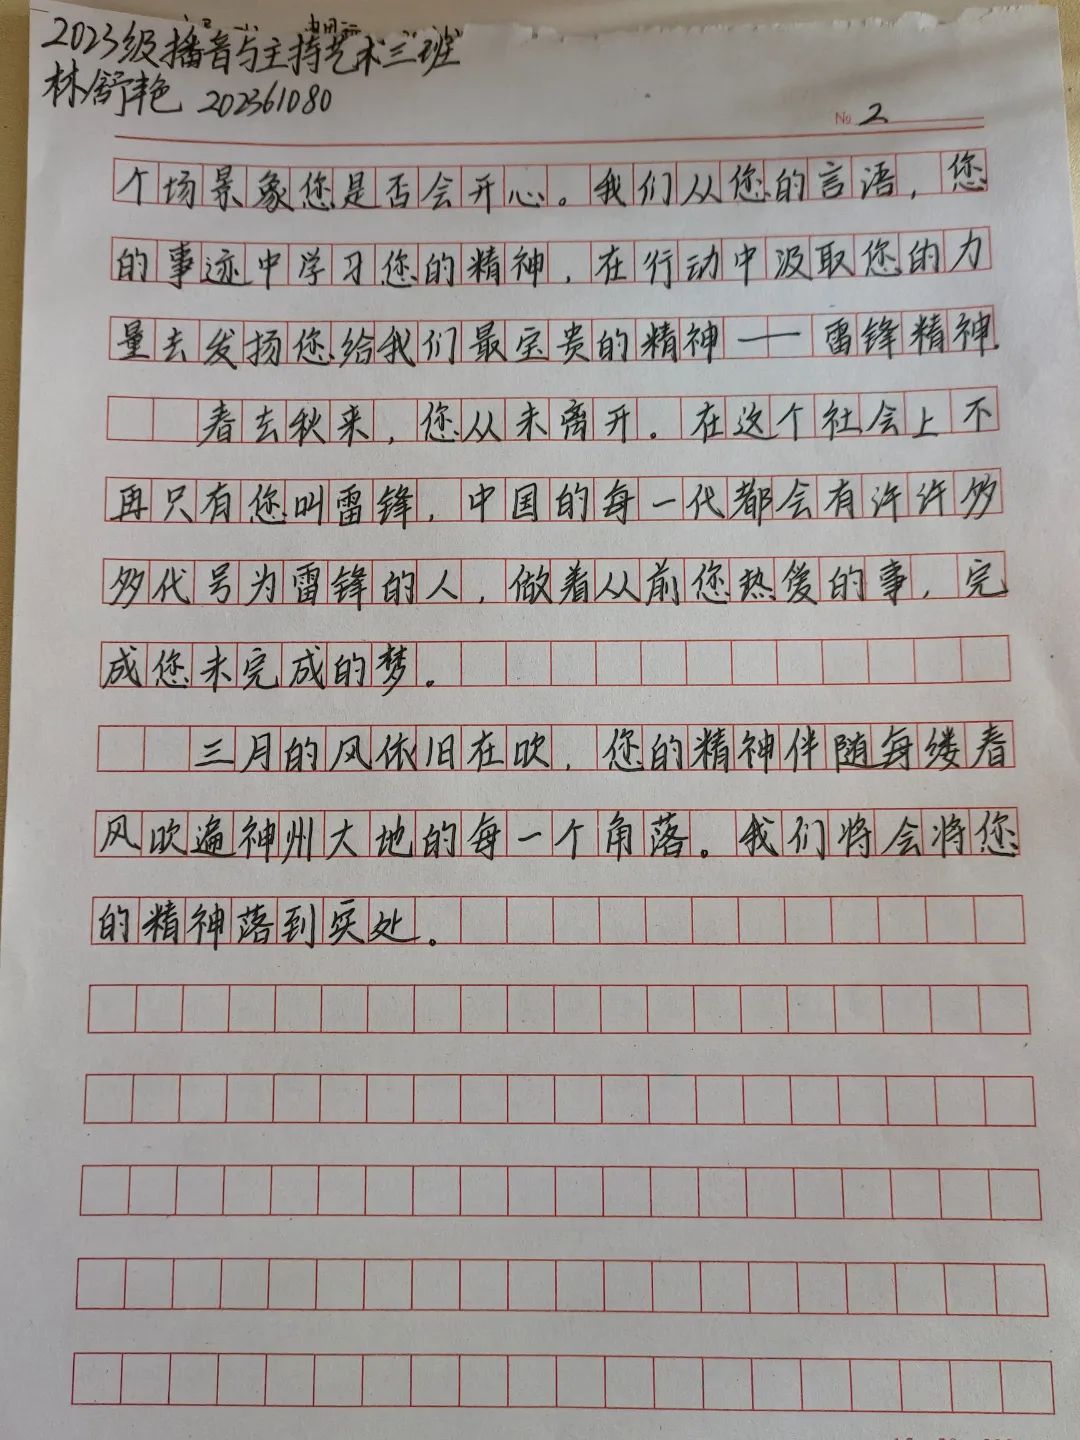 2023级播音与主持艺术三班
林舒艳 202361080
№ 2
个场景象您是否会开心。我们从您的言语，您
的事迹中学习您的精神，在行动中汲取您的力
量去发扬您给我们最宝贵的精神——雷锋精神.
春去秋来，您从未离开。在这个社会上不
再只有您叫雷锋，中国的每一代都会有许许多
多代号为雷锋的人，做着从前您热爱的事，完
成您未完成的梦。
三月的风依旧在吹，您的精神伴随每缕春
风吹遍神州大地的每一个角落。我们将会将您
的精神落到实处。